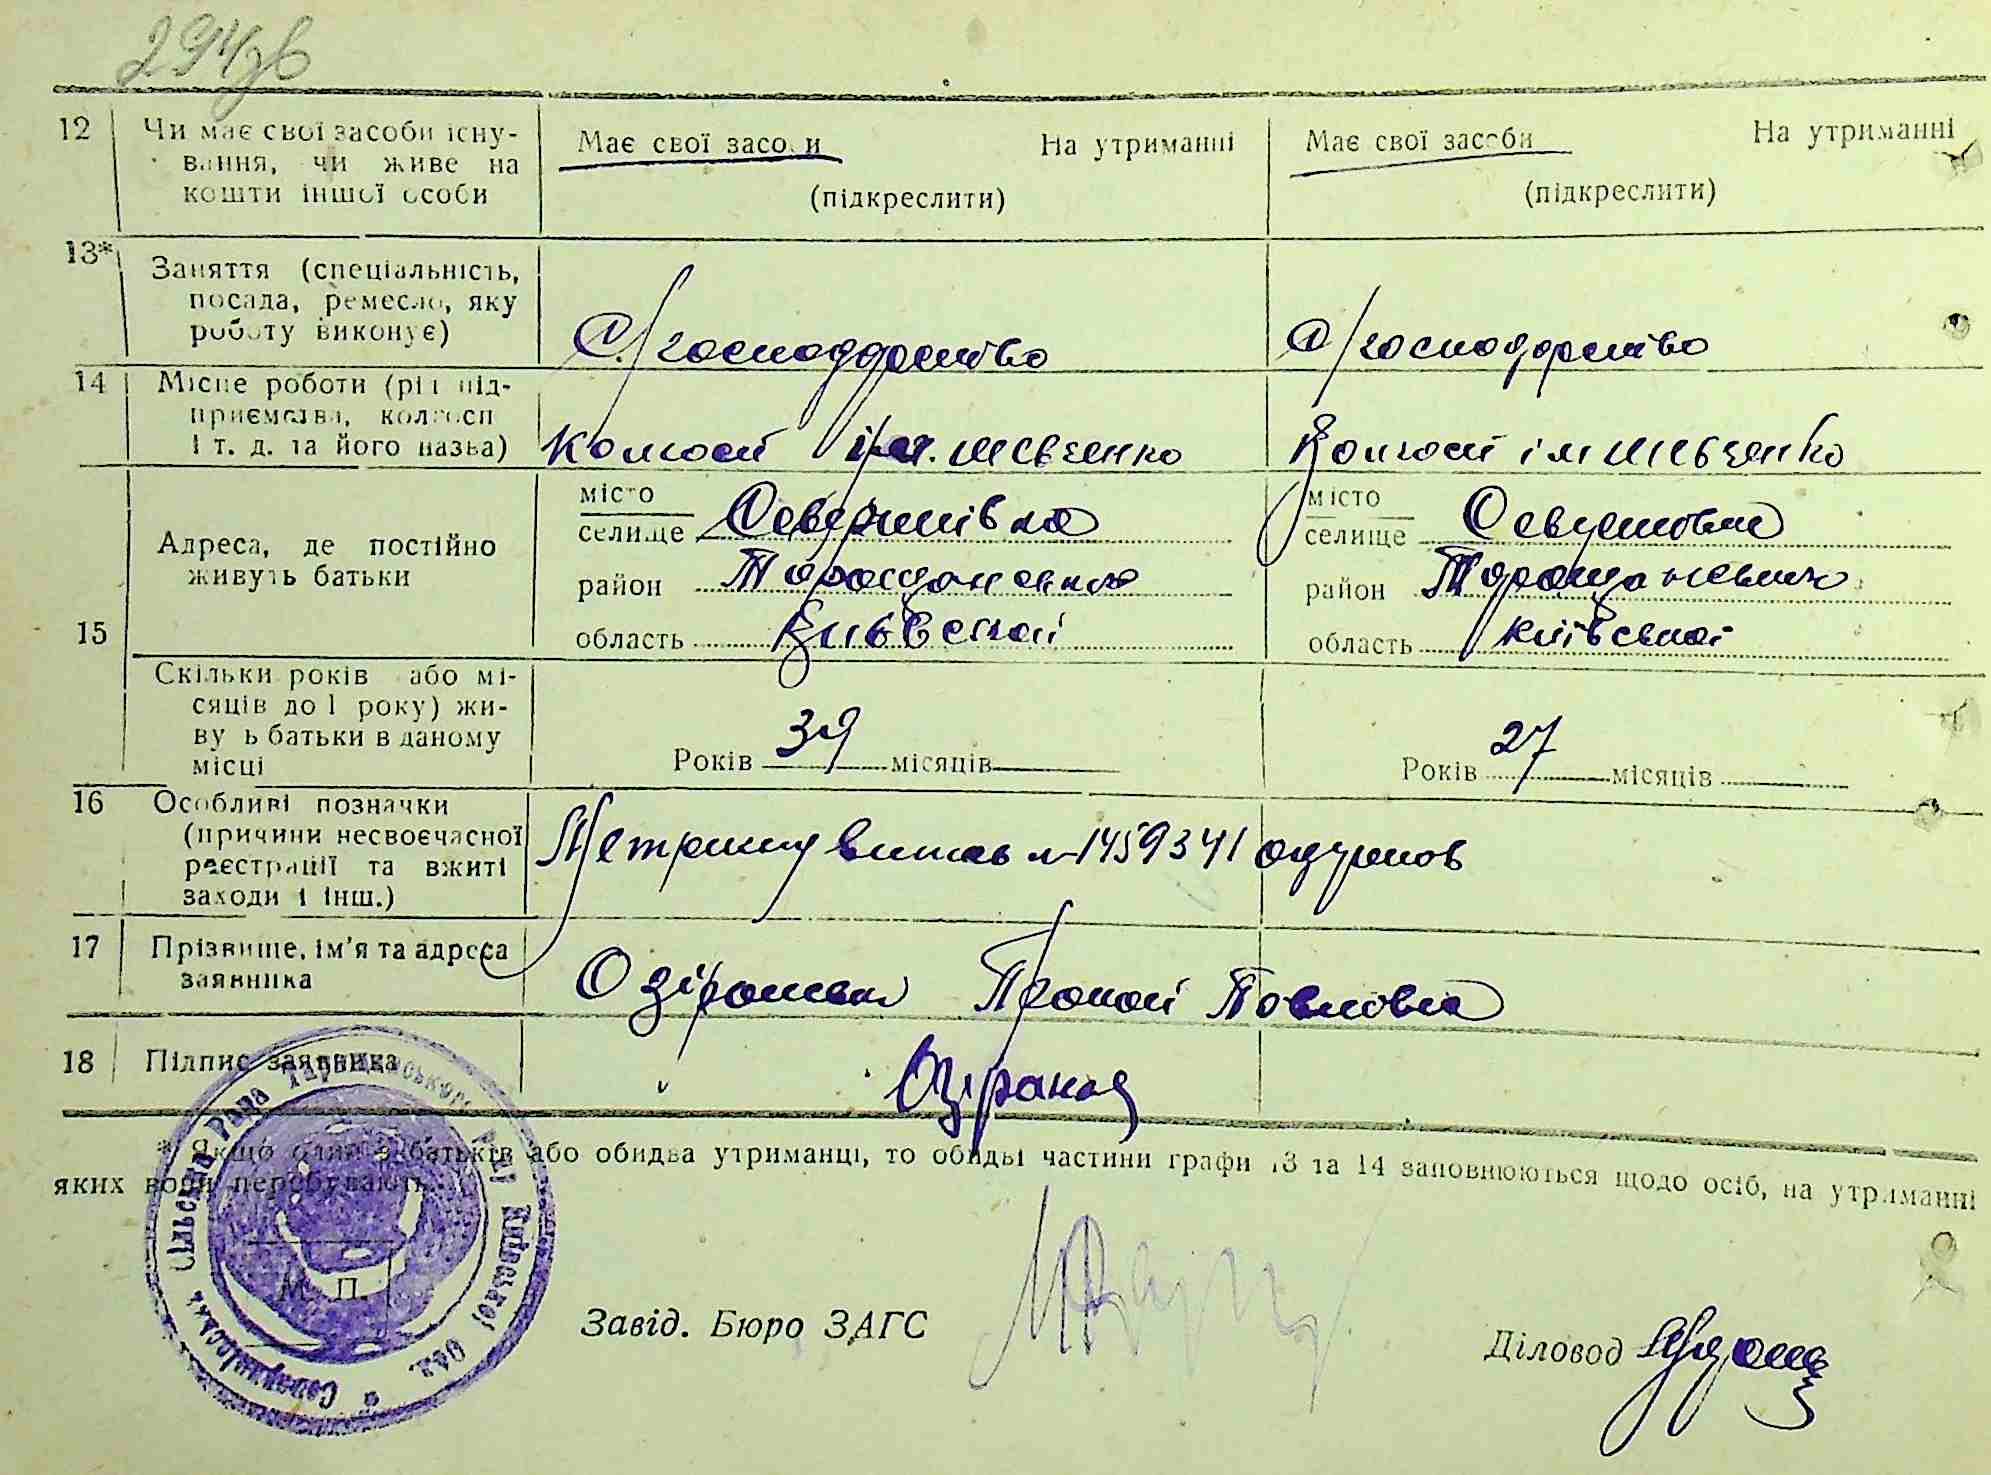 294зв
12 Чи має свої засоби існу-
вання, чи живе на
кошти іншої особи
Має свої засоби На утриманні
(підкреслити)
Має свої засоби На утриманні
(підкреслити)
13* Заняття (спеціальність,
посада, ремесло, яку
роботу виконує)
С/господарство
С/господарство
14 Місце роботи (рід під-
приємства, колгосп
і т. д. та його назва)
Колгосп ім. Шевченко
Колгосп ім Шевченко
15 Адреса, де постійно
живуть батьки
місто
селище Северинівка
район Таращанського
область Київської
місто
селище Северинівка
район Таращанського
область Київської
Скільки років або мі-
сяців до 1 року) жи-
вуть батьки в даному
місці
Років 39 місяців
Років 27 місяців
16 Особливі позначки
(причини несвоєчасної
реєстрації та вжиті
заходи і інш.)
Метрику видав № 1459341
17 Прізвище, ім'я та адреса
заявника
Павловна
18 Підпис заявника
* Якщо один з батьків або обидва утриманці, то обидві частини графи 13 та 14 заповнюються щодо осіб, на утриманні
яких вони перебувають.
Сільська Рада Таращанського р-ну Київської Обл.
М. П.
Завід. Бюро ЗАГС
Діловод